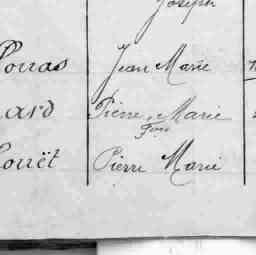 Joseph
Porras Jean Marie
ard Pierre Marie
Fçois
ouët Pierre Marie